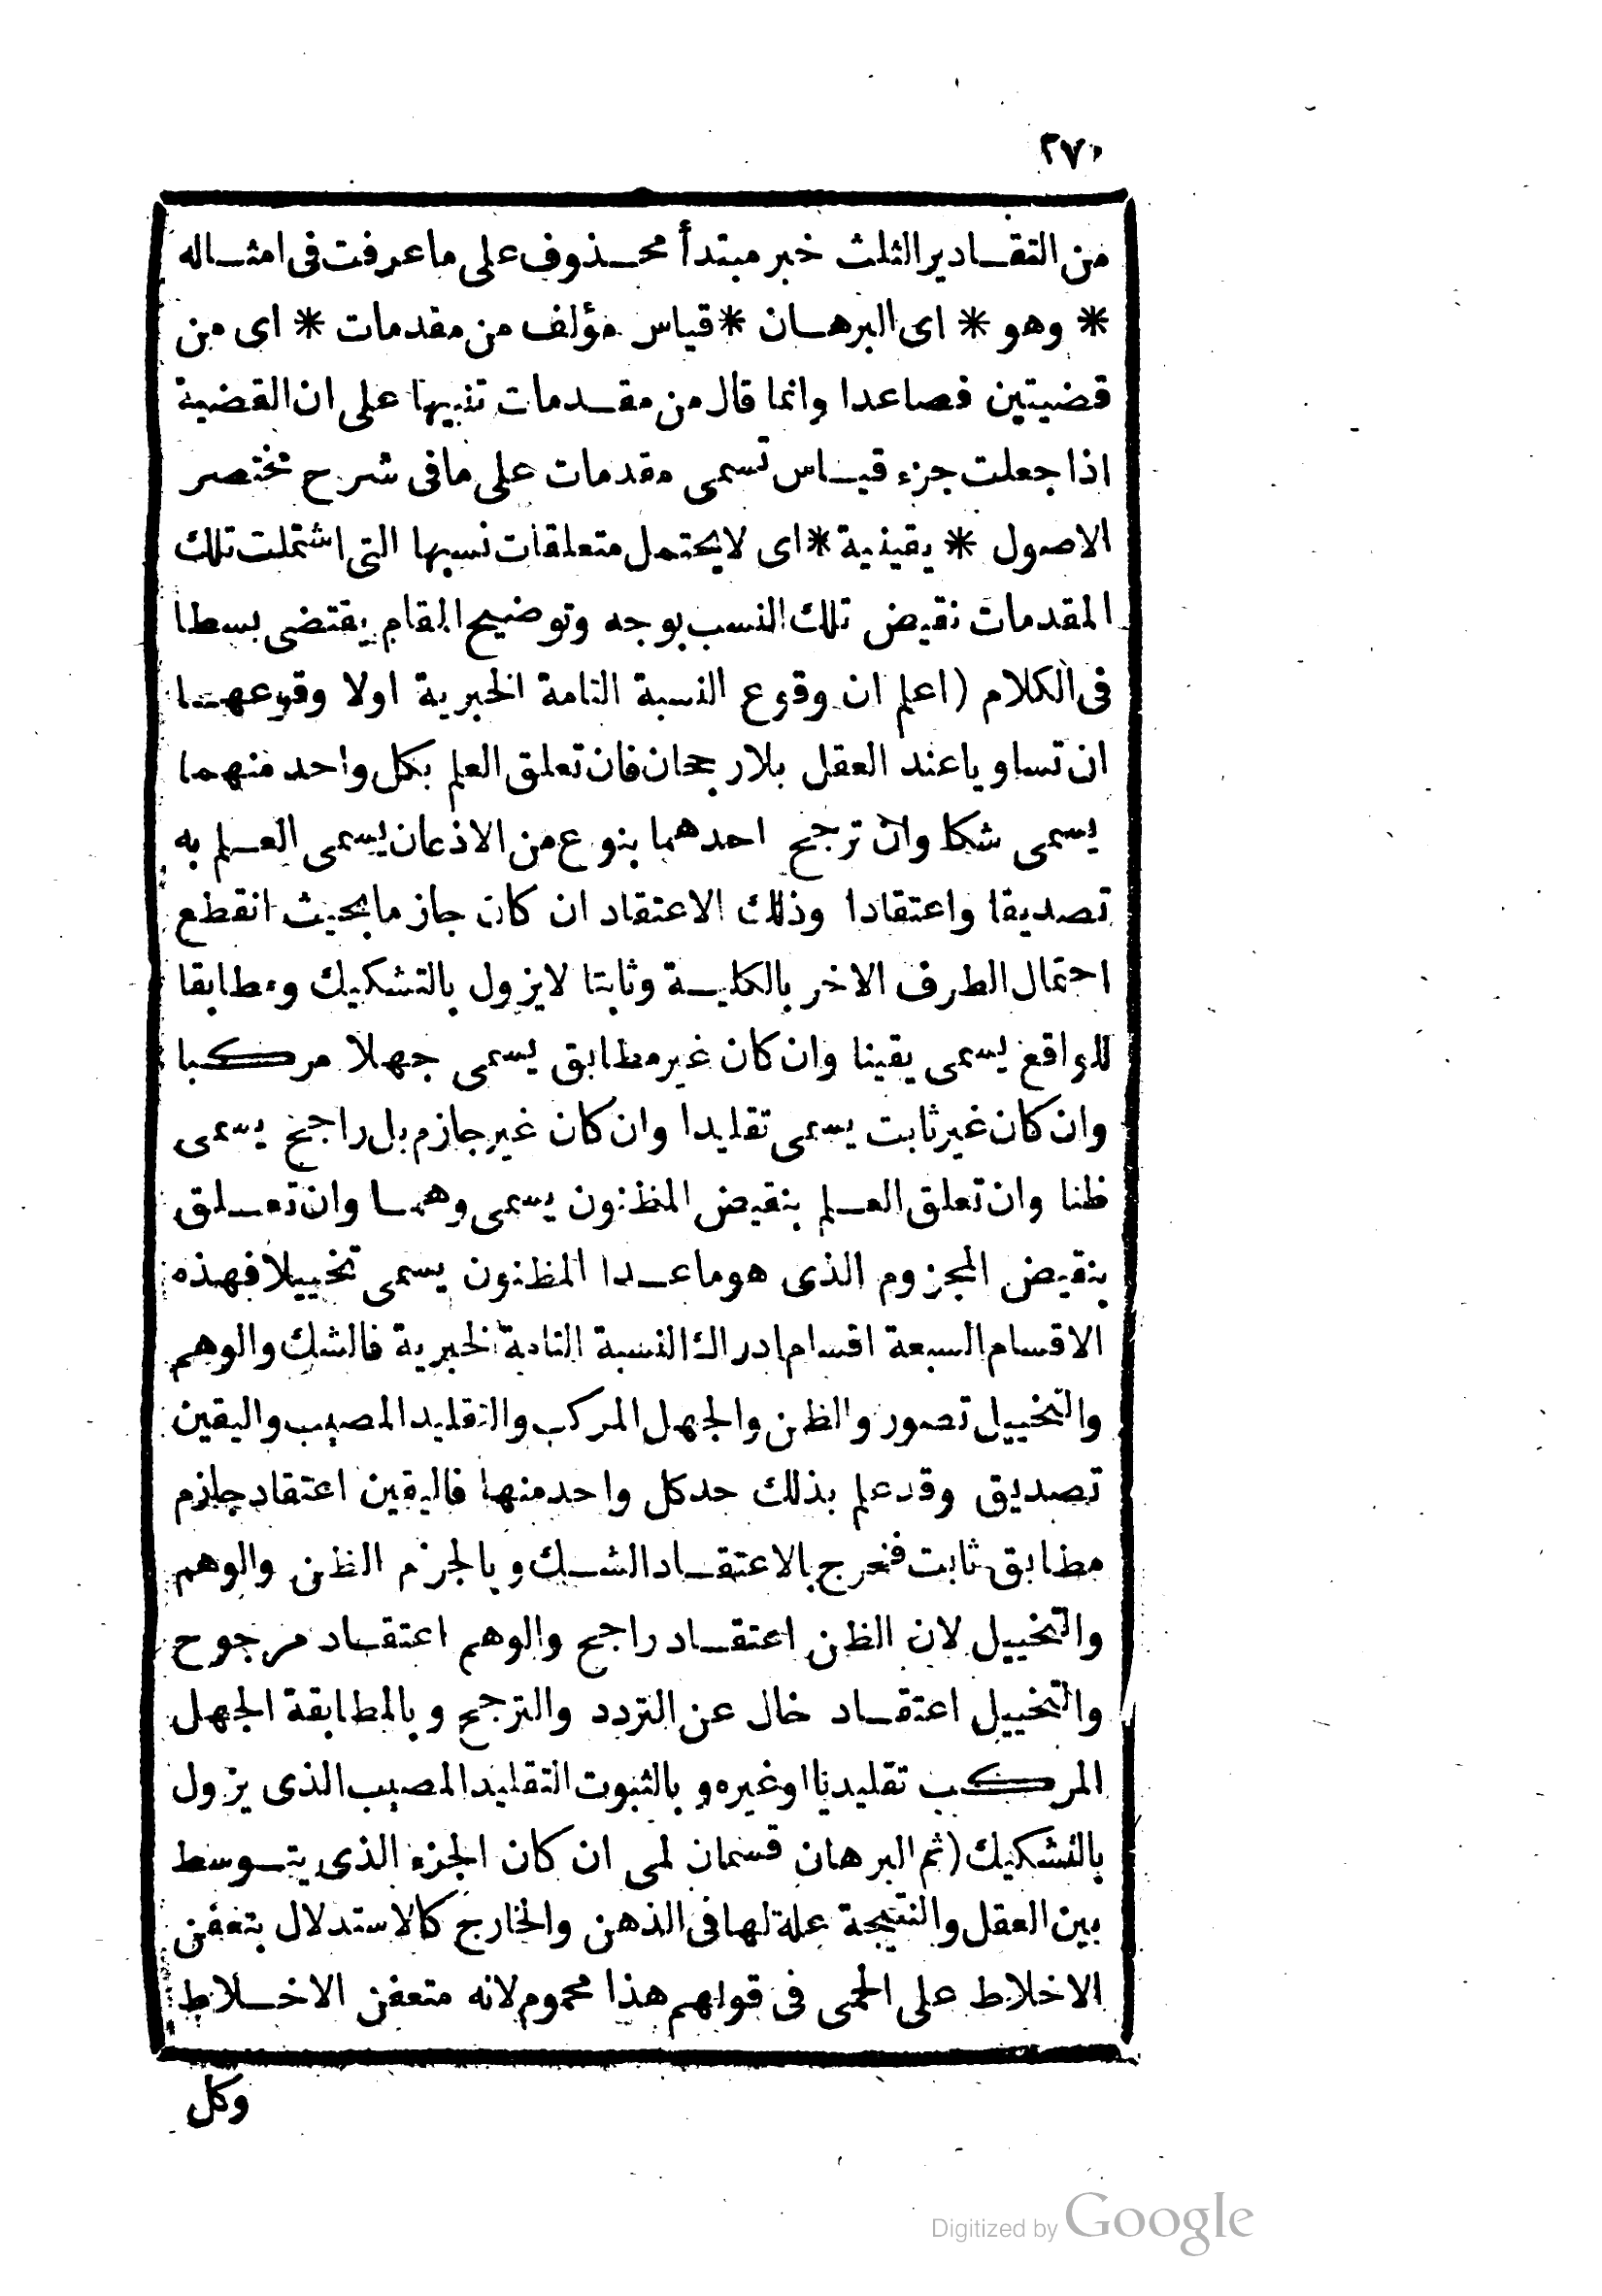 ٢٧٠
من التقادير الثلث خبر مبتدأ محذوف على ما عرفت فى امثاله
* وهو * اى البرهان * قياس مؤلف من مقدمات * اى من
قضيتين فصاعدا وانما قال من مقدمات تنبيها على ان القضية
اذا جعلت جزء قياس تسمى مقدمات على ما فى شرح مختصر
الاصول * يقينية * اى لا يحتمل متعلقات نسبها التى اشتملت تلك
المقدمات نقيض تلك النسب بوجه وتوضيح المقام يقتضى بسطا
فى الكلام (اعلم ان وقوع النسبة التامة الخبرية اولا وقوعها
ان تساويا عند العقل بلا رجحان فان تعلق العلم بكل واحد منهما
يسمى شكا وان ترجح احدهما بنوع من الاذعان يسمى العلم به
تصديقا واعتقادا وذلك الاعتقاد ان كان جازما بحيث انقطع
احتمال الطرف الاخر بالكلية وثابتا لا يزول بالتشكيك ومطابقا
للواقع يسمى يقينا وان كان غير مطابق يسمى جهلا مركبا
وان كان غير ثابت يسمى تقليدا وان كان غير جازم بل راجح يسمى
ظنا وان تعلق العلم بنقيض المظنون يسمى وهما وان تعلق
بنقيض المجزوم الذى هو ما عدا المظنون يسمى تخييلا فهذه
الاقسام السبعة اقسام ادراك النسبة التامة الخبرية فالشك والوهم
والتخييل تصور والظن والجهل المركب والتقليد المصيب واليقين
تصديق وقد علم بذلك حد كل واحد منها فاليقين اعتقاد جازم
مطابق ثابت فخرج بالاعتقاد الشك وبالجزم الظن والوهم
والتخييل لان الظن اعتقاد راجح والوهم اعتقاد مرجوح
والتخييل اعتقاد خال عن التردد والترجح وبالمطابقة الجهل
المركب تقليديا اوغيره وبالثبوت التقليد المصيب الذى يزول
بالتشكيك (ثم البرهان قسمان لمى ان كان الجزء الذى يتوسط
بين العقل والنتيجة علة لها فى الذهن والخارج كالاستدلال بتعفن
الاخلاط على الحمى فى قولهم هذا محموم لانه متعفن الاخلاط
وكل
Digitized by Google